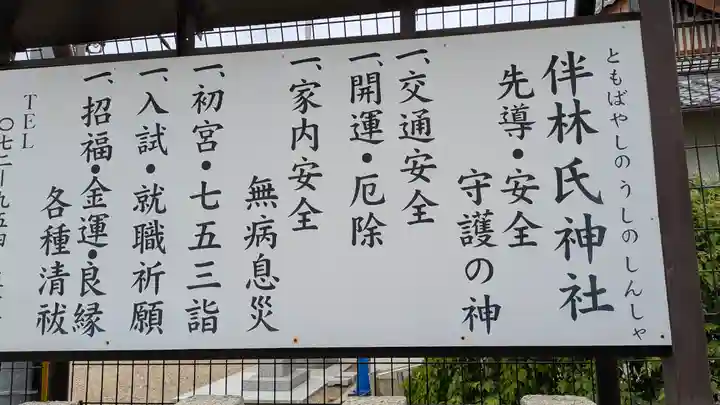 ともばやしの うしの しんしゃ
伴林氏神社
先導・安全
守護の神
一、交通安全
一、開運・厄除
一、家内安全
無病息災
一、初宮・七五三詣
一、入試・就職祈願
一、招福・金運・良縁
各種清祓
TEL
〇七二ー九五四